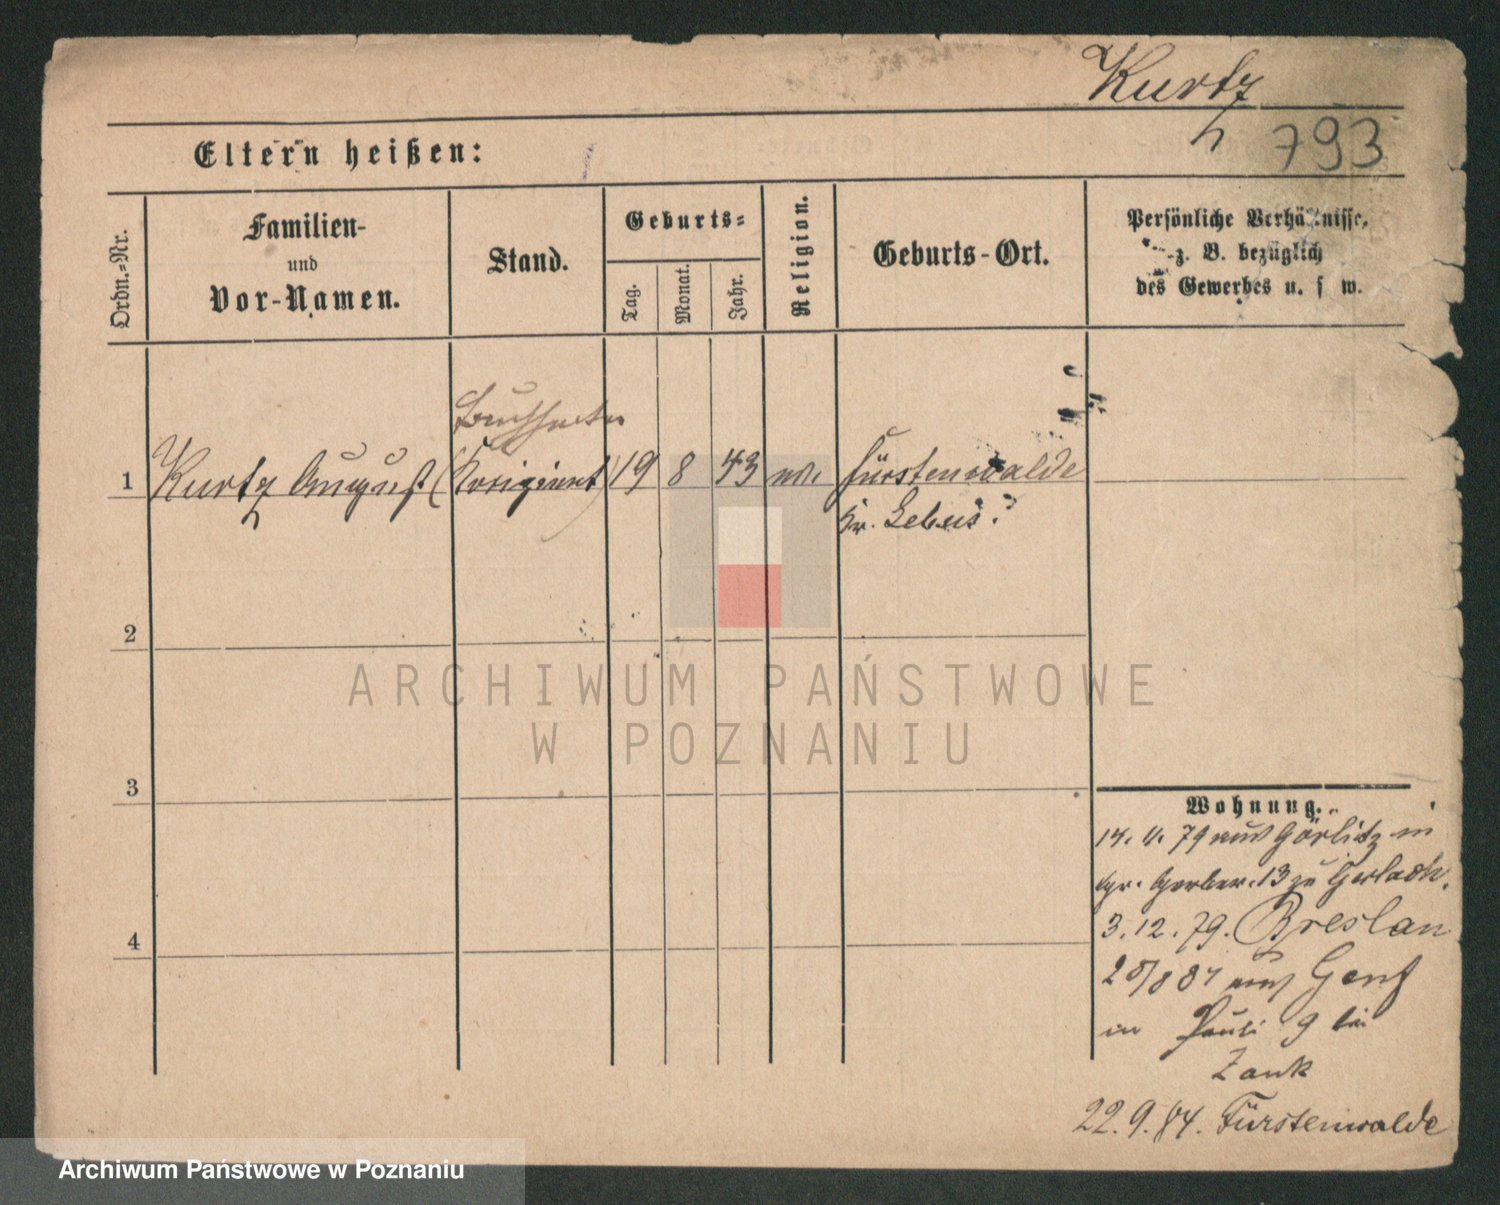 Kurtz
793
Eltern heißen:
Ordn.-Nr.
Familien-
und
Vor-Namen.
Stand.
Geburts-
Tag.
Monat.
Jahr.
Religion.
Geburts-Ort.
Persönliche Verhältnisse,
z. B. bezüglich
des Gewerbes u. s w.
Buchhalter
1 Kurtz August 19 8 43 Fürstenwalde
Kr. Lebus.
2
3
4
Wohnung.
79 aus Görlitz in
13 zu Gerlach.
3.12.79. Breslau
Genf
in Pauli 9 bei
Zank
22.9.84. Fürstenwalde
ARCHIWUM PAŃSTWOWE
W POZNANIU
Archiwum Państwowe w Poznaniu